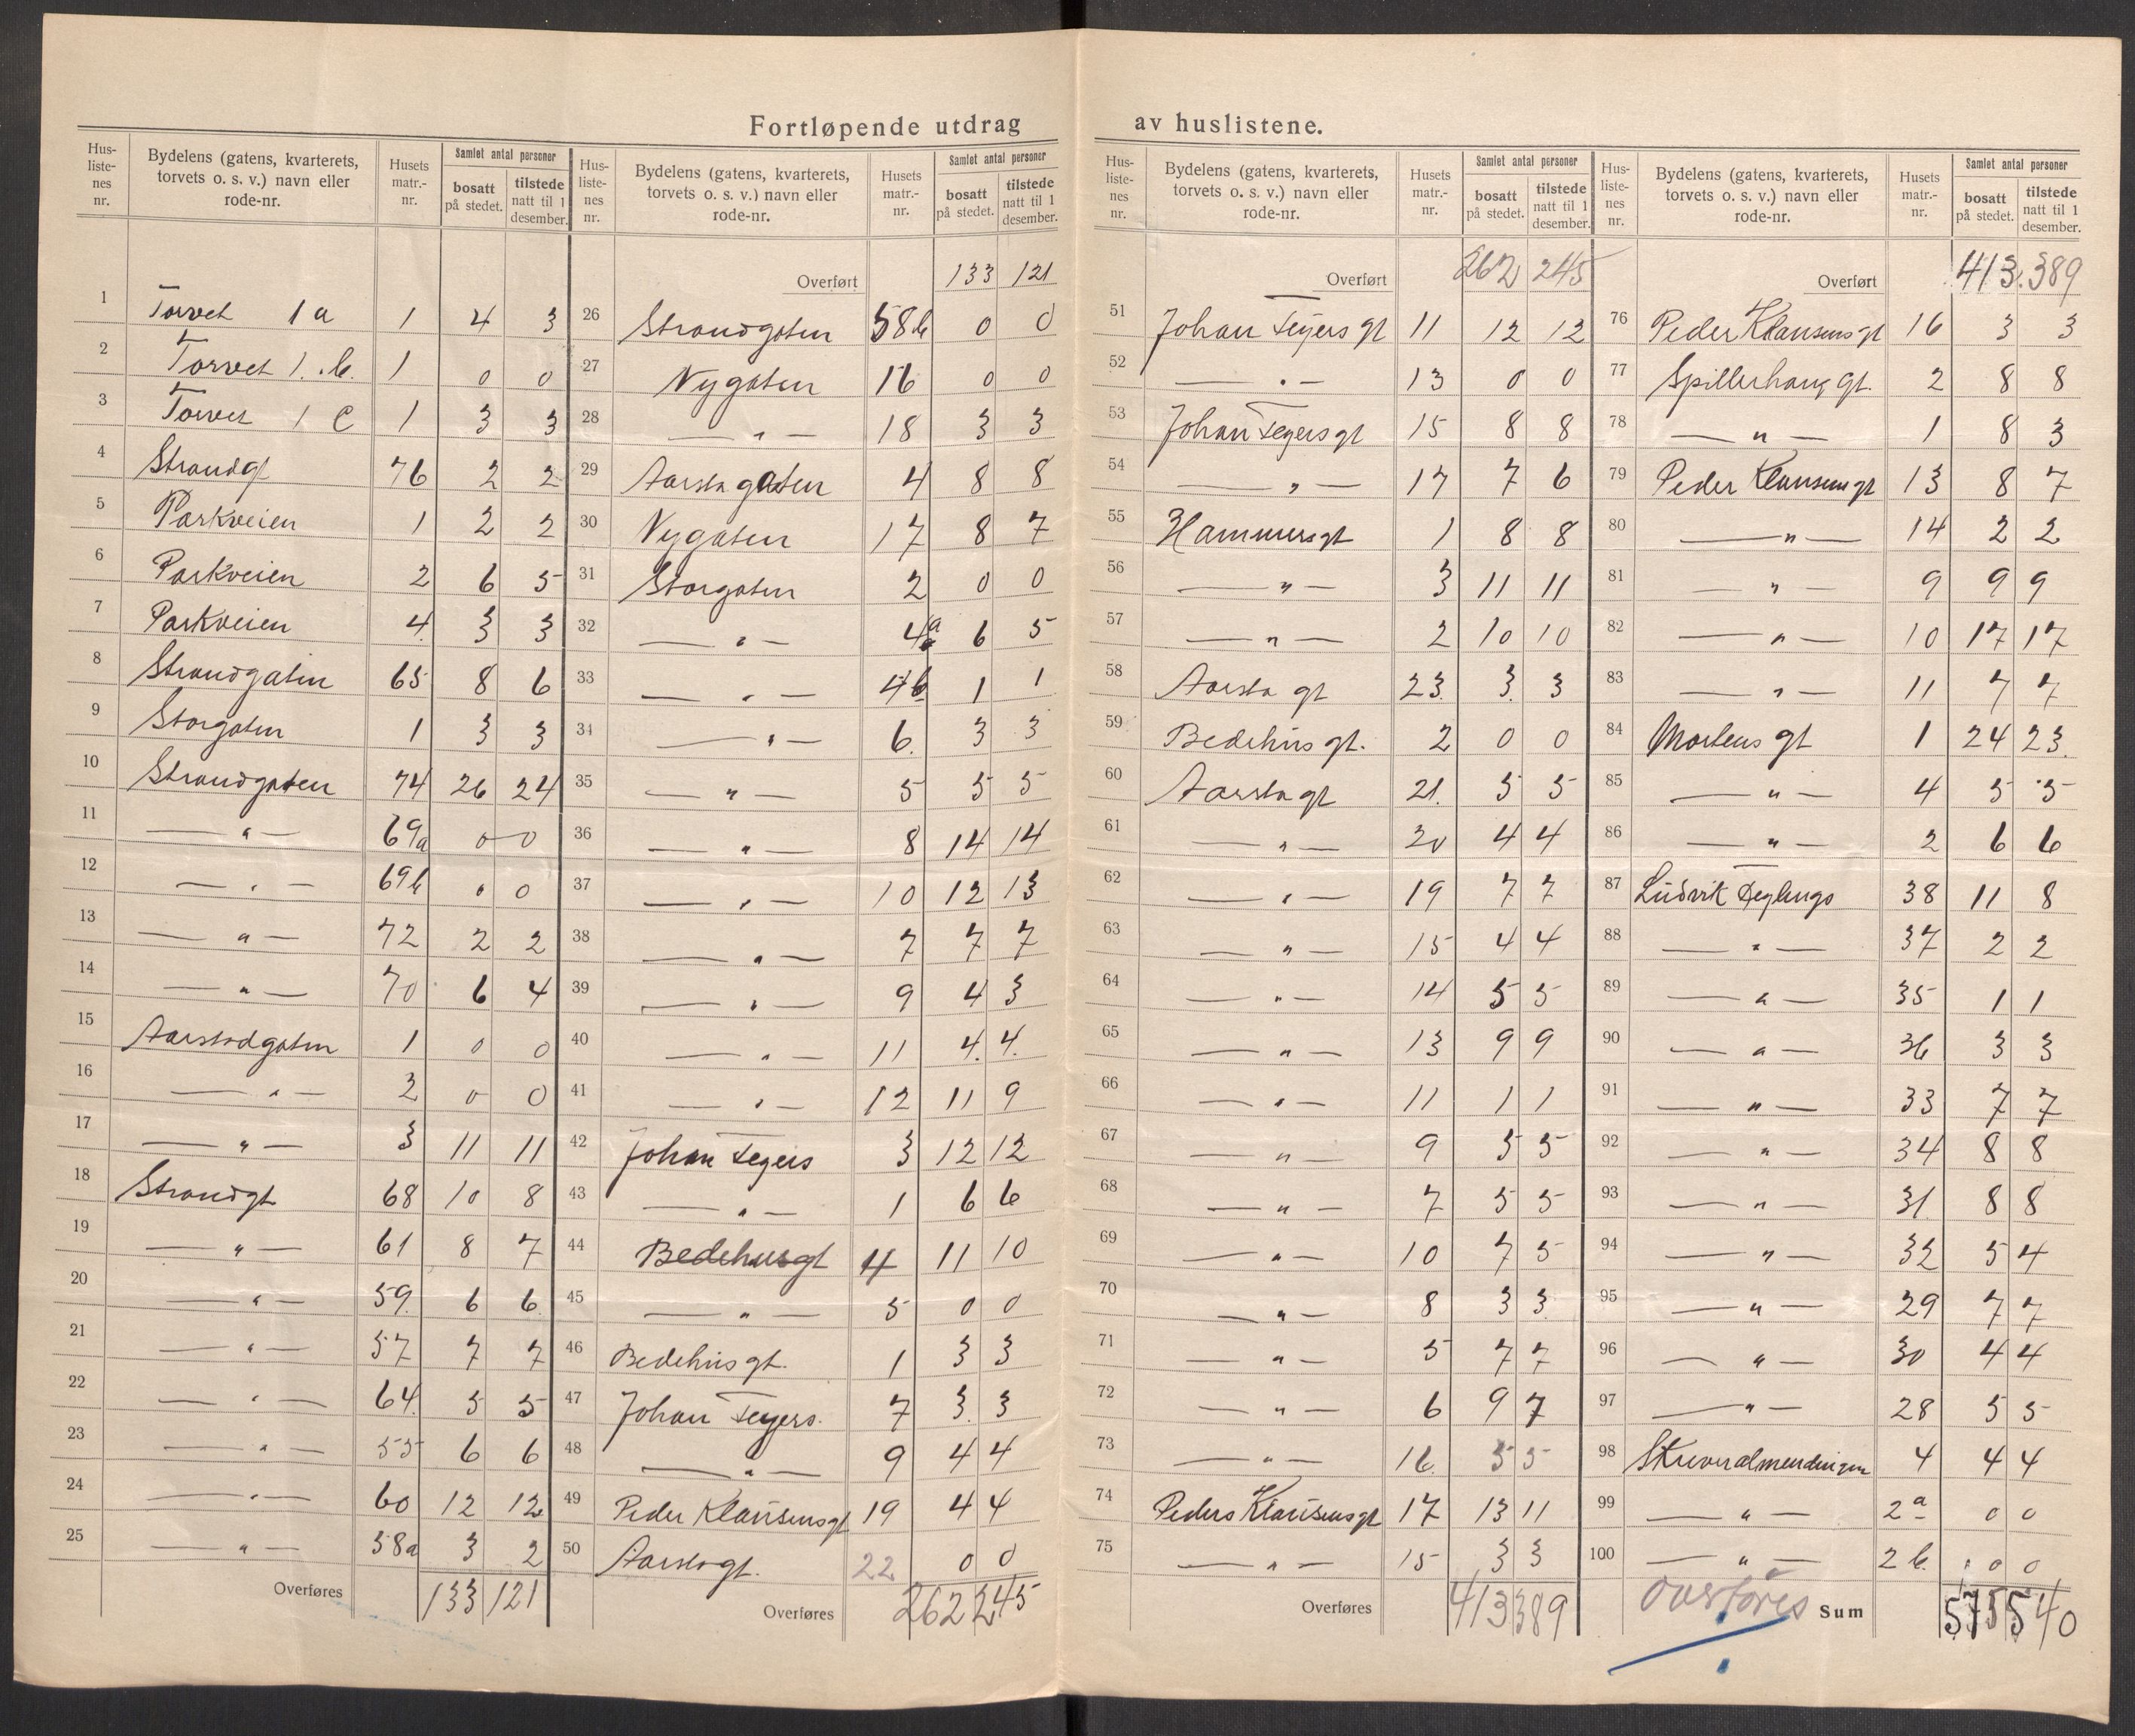 Fortløpende utdrag av huslistene.
Hus-listenes nr. | Bydelens (gatens, kvarterets, torvets o. s. v.) navn eller rode-nr. | Husets matr.-nr. | Samlet antal personer bosatt på stedet. | tilstede natt til 1 desember.
1 Torvet 1 a 1 4 3
2 Torvet 1. b. 1 0 0
3 Torvet 1 C 1 3 3
4 Strandgt 76 2 2
5 Parkveien 1 2 2
6 Parkveien 2 6 5
7 Parkveien 4. 3 3
8 Strandgaten 65 8 6
9 Storgaten 1 3 3
10 Strandgaten 74 26 24
11 — " — 69a 0 0
12 — " — 69b 0 0
13 — " — 72 2 2
14 — " — 70 6 4
15 Aarstadgaten 1 0 0
16 — " — 2 0 0
17 — " — 3 11 11
18 Strandgt 68 10 8
19 — " — 61 8 7
20 — " — 59. 6 6.
21 — " — 57 7 7
22 — " — 64. 5 5
23 — " — 55 6 6
24 — " — 60 12 12
25 — " — 58a 3 2
Overføres 133 121
Hus-listenes nr. | Bydelens (gatens, kvarterets, torvets o. s. v.) navn eller rode-nr. | Husets matr.-nr. | Samlet antal personer bosatt på stedet. | tilstede natt til 1 desember.
Overført 133 121
26 Strandgaten 58b 0 0
27 Nygaten 16 0 0
28 — " — 18 3 3
29 Aarstagaten 4 8 8
30 Nygaten 17 8 7
31 Storgaten 2 0 0
32 — " — 4a 6 5
33 — " — 4b 1 1
34 — " — 6. 3 3
35 — " — 5 5 5
36 — " — 8 14 14
37 — " — 10 12 13
38 — " — 7 7 7
39 — " — 9 4 3
40 — " — 11 4. 4.
41 — " — 12 11 9
42 Johan Feyers 3 12 12
43 — " — 1 6 6
44 Bedehusgt 4 11 10
45 — " — 5 0 0
46 Bedehus gt. 1 3 3
47 Johan Feyers. 7 3. 3
48 — " — 9 4 4
49 Peder Klausensgt 19 4 4
50 Aarstagt. 22 0 0
Overføres 262 245
Hus-listenes nr. | Bydelens (gatens, kvarterets, torvets o. s. v.) navn eller rode-nr. | Husets matr.-nr. | Samlet antal personer bosatt på stedet. | tilstede natt til 1 desember.
Overført 262 245
51 Johan Feyers gt 11 12 12
52 — " — 13 0 0
53 Johan Feyersgt 15 8 8
54 — " — 17 7 6
55 Hammersgt 1 8 8
56 — " — 3 11 11
57 — " — 2 10 10
58 Aarsta gt 23. 3. 3
59 Bedehus gt. 2 0 0
60 Aarsta gt 21. 5 5
61 — " — 20 4 4
62 — " — 19 7 7
63 — " — 15 4 4
64 — " — 14 5 5
65 — " — 13 9 9
66 — " — 11 1 1
67 — " — 9 5 5
68 — " — 7 5 5
69 — " — 10 7 5
70 — " — 8 3 3.
71 — " — 5 7 7
72 — " — 6 9 7
73 — " — 16. 5 5
74 Peders Klausensgt 17 13 11
75 — " — 15 3 3
Overføres 413 389
Hus-listenes nr. | Bydelens (gatens, kvarterets, torvets o. s. v.) navn eller rode-nr. | Husets matr.-nr. | Samlet antal personer bosatt på stedet. | tilstede natt til 1 desember.
Overført 413. 389
76 Peder Klausens gt 16 3 3
77 Spillerhaug gt. 2 8 8
78 — " — 1 8 3
79 Peder Klausensgt 13 8 7
80 — " — 14 2 2
81 — " — 9 9 9
82 — " — 10 17 17
83 — " — 11 7 7
84 Mortens gt 1 24 23.
85 — " — 4 5 5
86 — " — 2 6 6
87 Ludvik 38 11 8
88 — " — 37 2 2
89 — " — 35 1 1
90 — " — 36 3 3
91 — " — 33 7 7
92 — " — 34 8 8
93 — " — 31. 8 8
94 — " — 32 5 4
95 — " — 29 7 7
96 — " — 30 4 4
97 — " — 28 5 5
98 Skeveralmendingen 4 4 4
99 — " — 2a 0 0
100 — " — 2 b. 0 0
overføres Sum 575 540